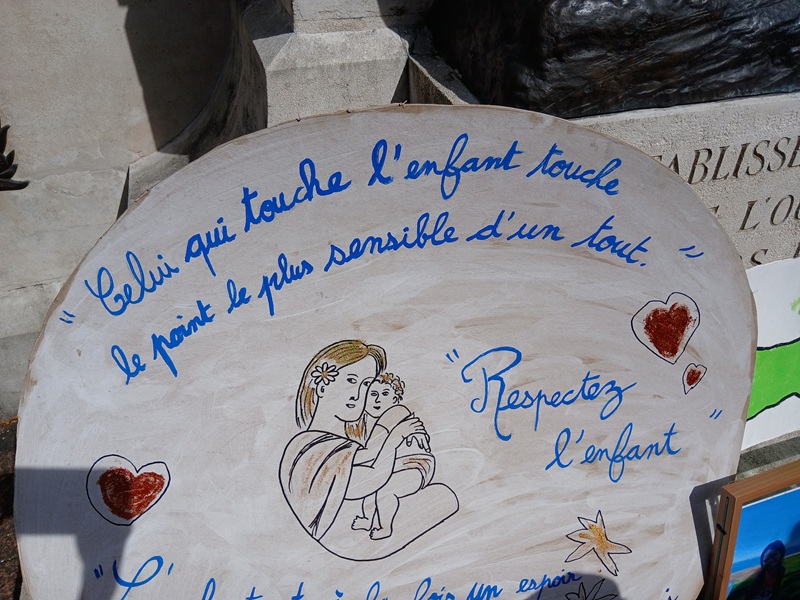 " Celui qui touche l'enfant touche
le point le plus sensible d'un tout. "
" Respectez
l'enfant "
un espoir
L'OU